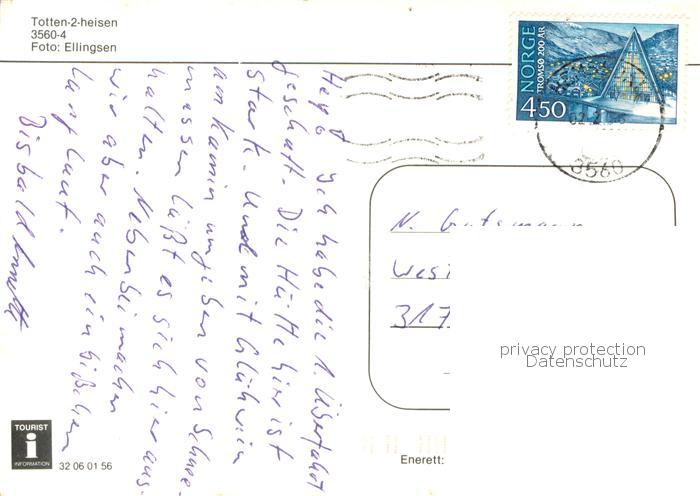 Totten-2-heisen
3560-4
Foto: Ellingsen
NORGE
TROMSØ 200 ÅR
450
3560
Hey, ich habe die 1. Überfahrt
geschafft. Die Hütte hier ist
stark. Und mit Glühwein
am Kamin umgeben von Schnee-
massen läßt es sich hier aus-
halten. Nebenbei machen
wir aber auch ein bißchen
Langlauf.
Bis bald
N. Gutsmann
Wesi
317
privacy protection
Datenschutz
TOURIST
i
INFORMATION
32 06 01 56
Enerett: